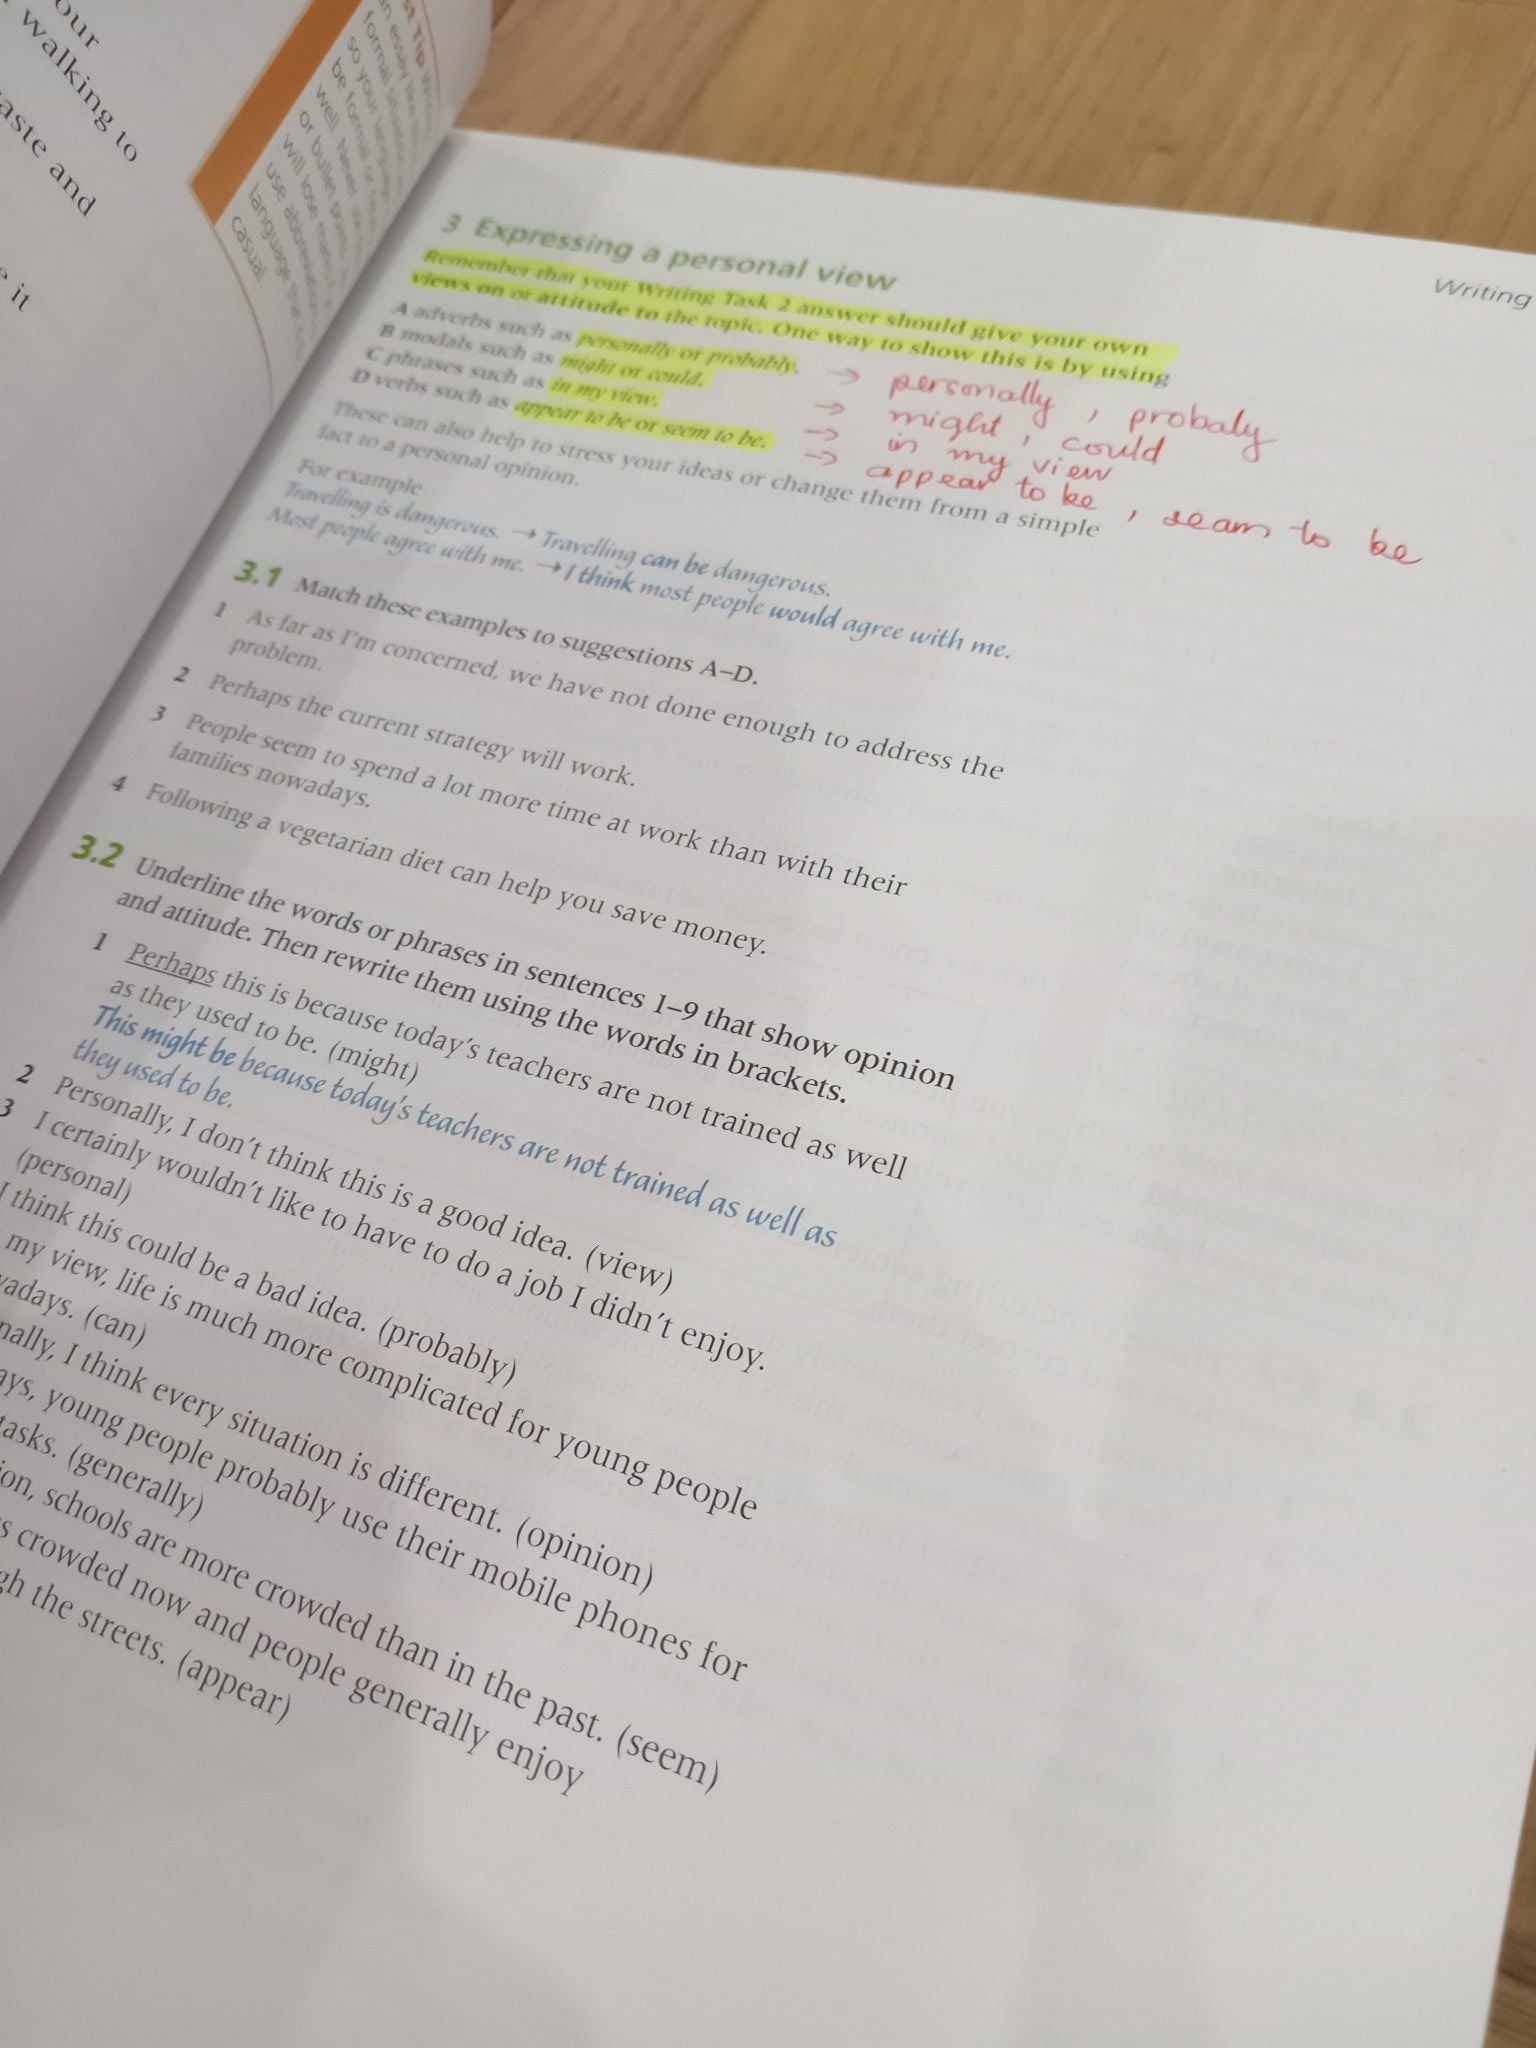 our
walking to
aste and
e it
st Tip
an essay like this
formal situation
so your language
be formal or
well. Never use
or bullet points
will lose marks
use abbreviations
language that
casual.
Writing
3 Expressing a personal view
Remember that your Writing Task 2 answer should give your own
views on or attitude to the topic. One way to show this is by using
A adverbs such as personally or probably. → personally, probaly
B modals such as might or could. → might, could
C phrases such as in my view. → in my view
D verbs such as appear to be or seem to be. → appear to be, seam to be
These can also help to stress your ideas or change them from a simple
fact to a personal opinion.
For example
Travelling is dangerous. → Travelling can be dangerous.
Most people agree with me. → I think most people would agree with me.
3.1 Match these examples to suggestions A–D.
1 As far as I'm concerned, we have not done enough to address the
problem.
2 Perhaps the current strategy will work.
3 People seem to spend a lot more time at work than with their
families nowadays.
4 Following a vegetarian diet can help you save money.
3.2 Underline the words or phrases in sentences 1–9 that show opinion
and attitude. Then rewrite them using the words in brackets.
1 Perhaps this is because today's teachers are not trained as well
as they used to be. (might)
This might be because today's teachers are not trained as well as
they used to be.
2 Personally, I don't think this is a good idea. (view)
3 I certainly wouldn't like to have to do a job I didn't enjoy.
(personal)
I think this could be a bad idea. (probably)
my view, life is much more complicated for young people
wadays. (can)
nally, I think every situation is different. (opinion)
ays, young people probably use their mobile phones for
tasks. (generally)
ion, schools are more crowded than in the past. (seem)
s crowded now and people generally enjoy
gh the streets. (appear)